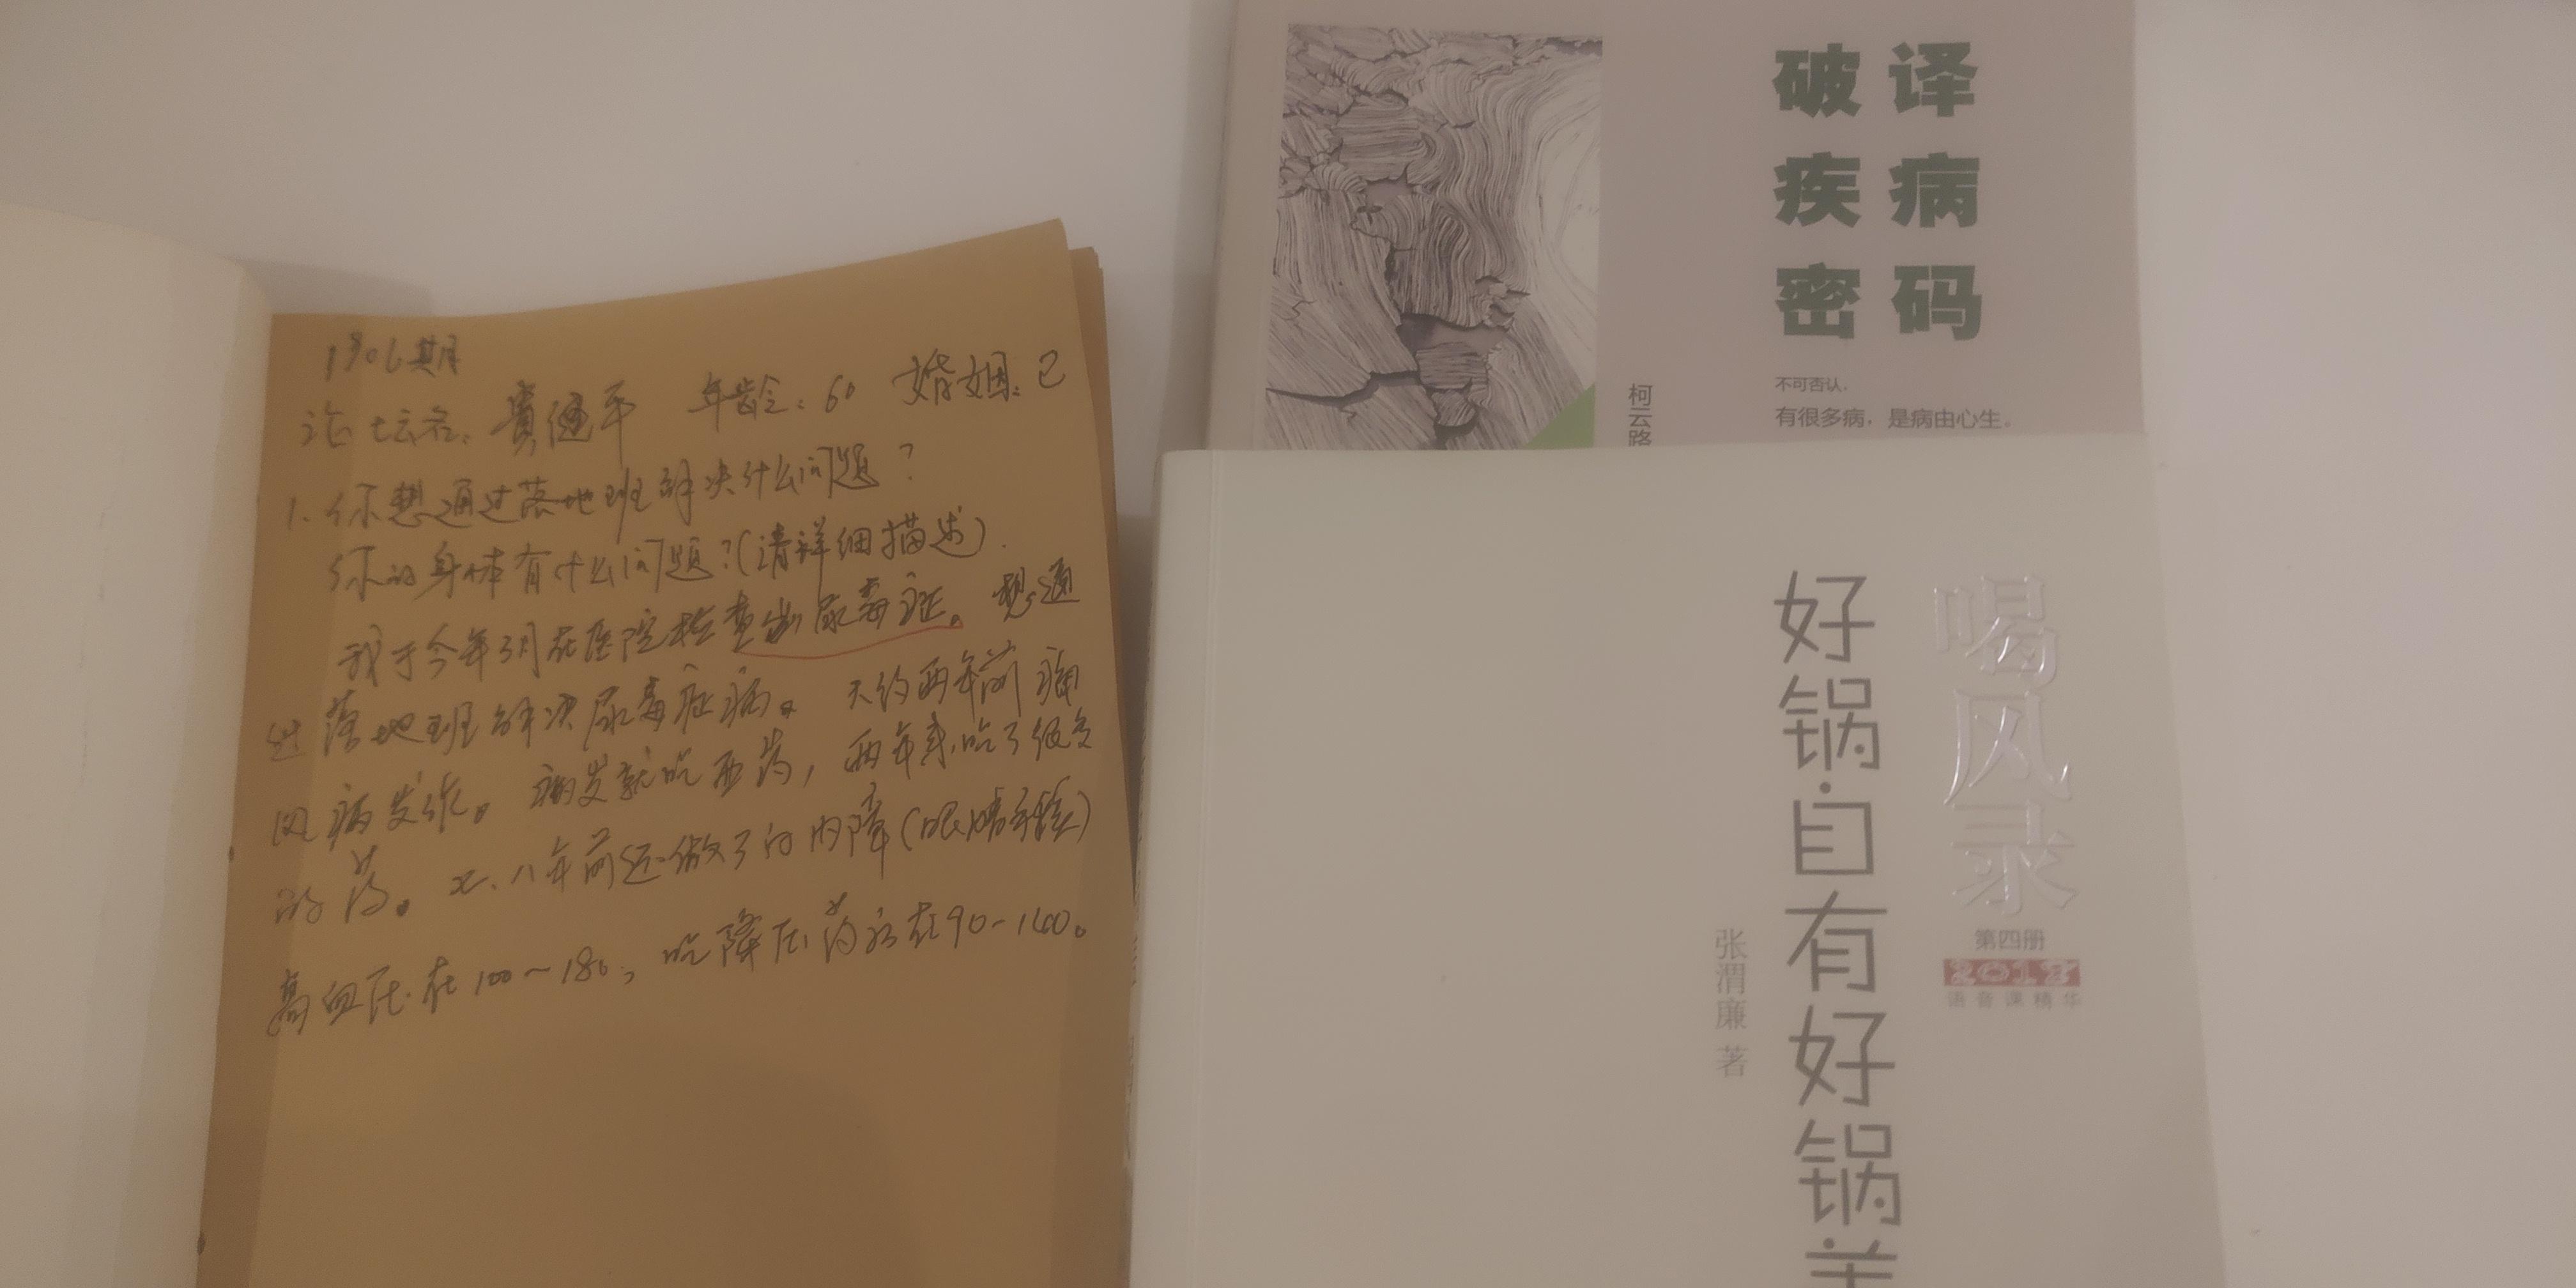 1906期
论坛名:黄健平 年龄:60 婚姻:已
1.你想通过落地班解决什么问题?
你的身体有什么问题?(请详细描述).
我于今年3月在医院检查出尿毒症。想通
过落地班解决尿毒症病。大约两年前痛
风病发作。病发就吃西药,两年来吃了很多
的药。七、八年前还做了白内障(眼睛手术)
高血压在100~180,吃降压药后在90-140。
破译
疾病
密码
不可否认,
有很多病,是病由心生。
柯云路
喝风录
第四册
2018
语音课精华
好锅·自有好锅盖
张渭廉 著